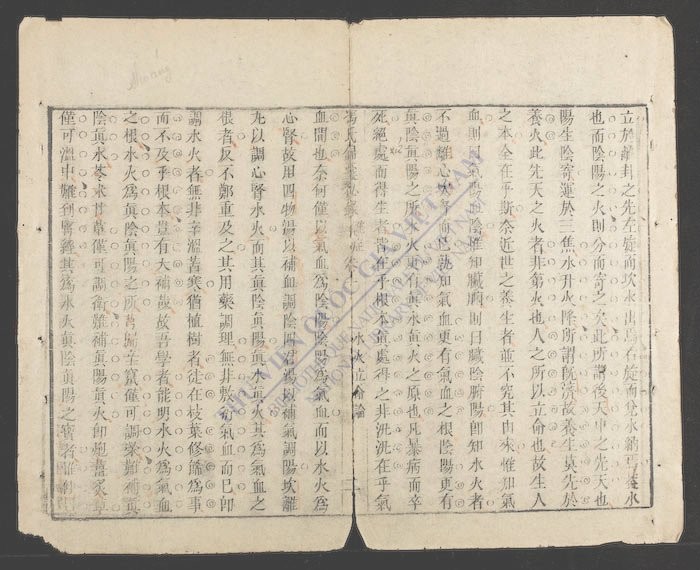 立於離卦之先左旋而坎水出焉右旋而兌水納焉蓋水
也而陰陽之火則分而寄之矣此所謂後天中之先天也
陽生陰寄運於三焦水升火降所謂既濟故養生莫先於
養火此先天之火者非第火也人之所以立命也故生人
之本全在乎斯奈近世之養生者並不究其由來惟知氣
血則曰氣陽血陰惟知臟腑則曰臟陰腑陽即知水火者
不過離心坎腎而已孰知氣血更有氣血之根陰陽更有
真陰真陽之所水火更有真水真火之原也凡暴病而卒
死絕處而得生者皆在乎根本真處得之非洗洗在乎氣
馮氏錦囊秘錄 水火立命論 二
血間也奈何僅以氣血為陰陽陰陽為氣血而以水火為
心腎故用四物湯以補血調陰四君湯以補氣調陽坎離
丸以調心腎水火而其真陰真陽真水真火其為氣血之
根者反不鄭重及之其用藥調理無非救治氣血而已即
調水火者無非辛溫苦寒猶植樹者徒在枝葉修飾為事
而不及乎根本豈有大補哉故吾學者能明水火為氣血
之根水火為真陰真陽之所 歸 僅可調榮難補真
陰真水芩朮甘草僅可調衛難補真陽真火即炮薑炙草
僅可溫中難到腎經其為水火真陰真陽之寶者惟
Hoàng
THƯ VIỆN QUỐC GIA VIỆT NAM
NATIONAL LIBRARY OF VIETNAM